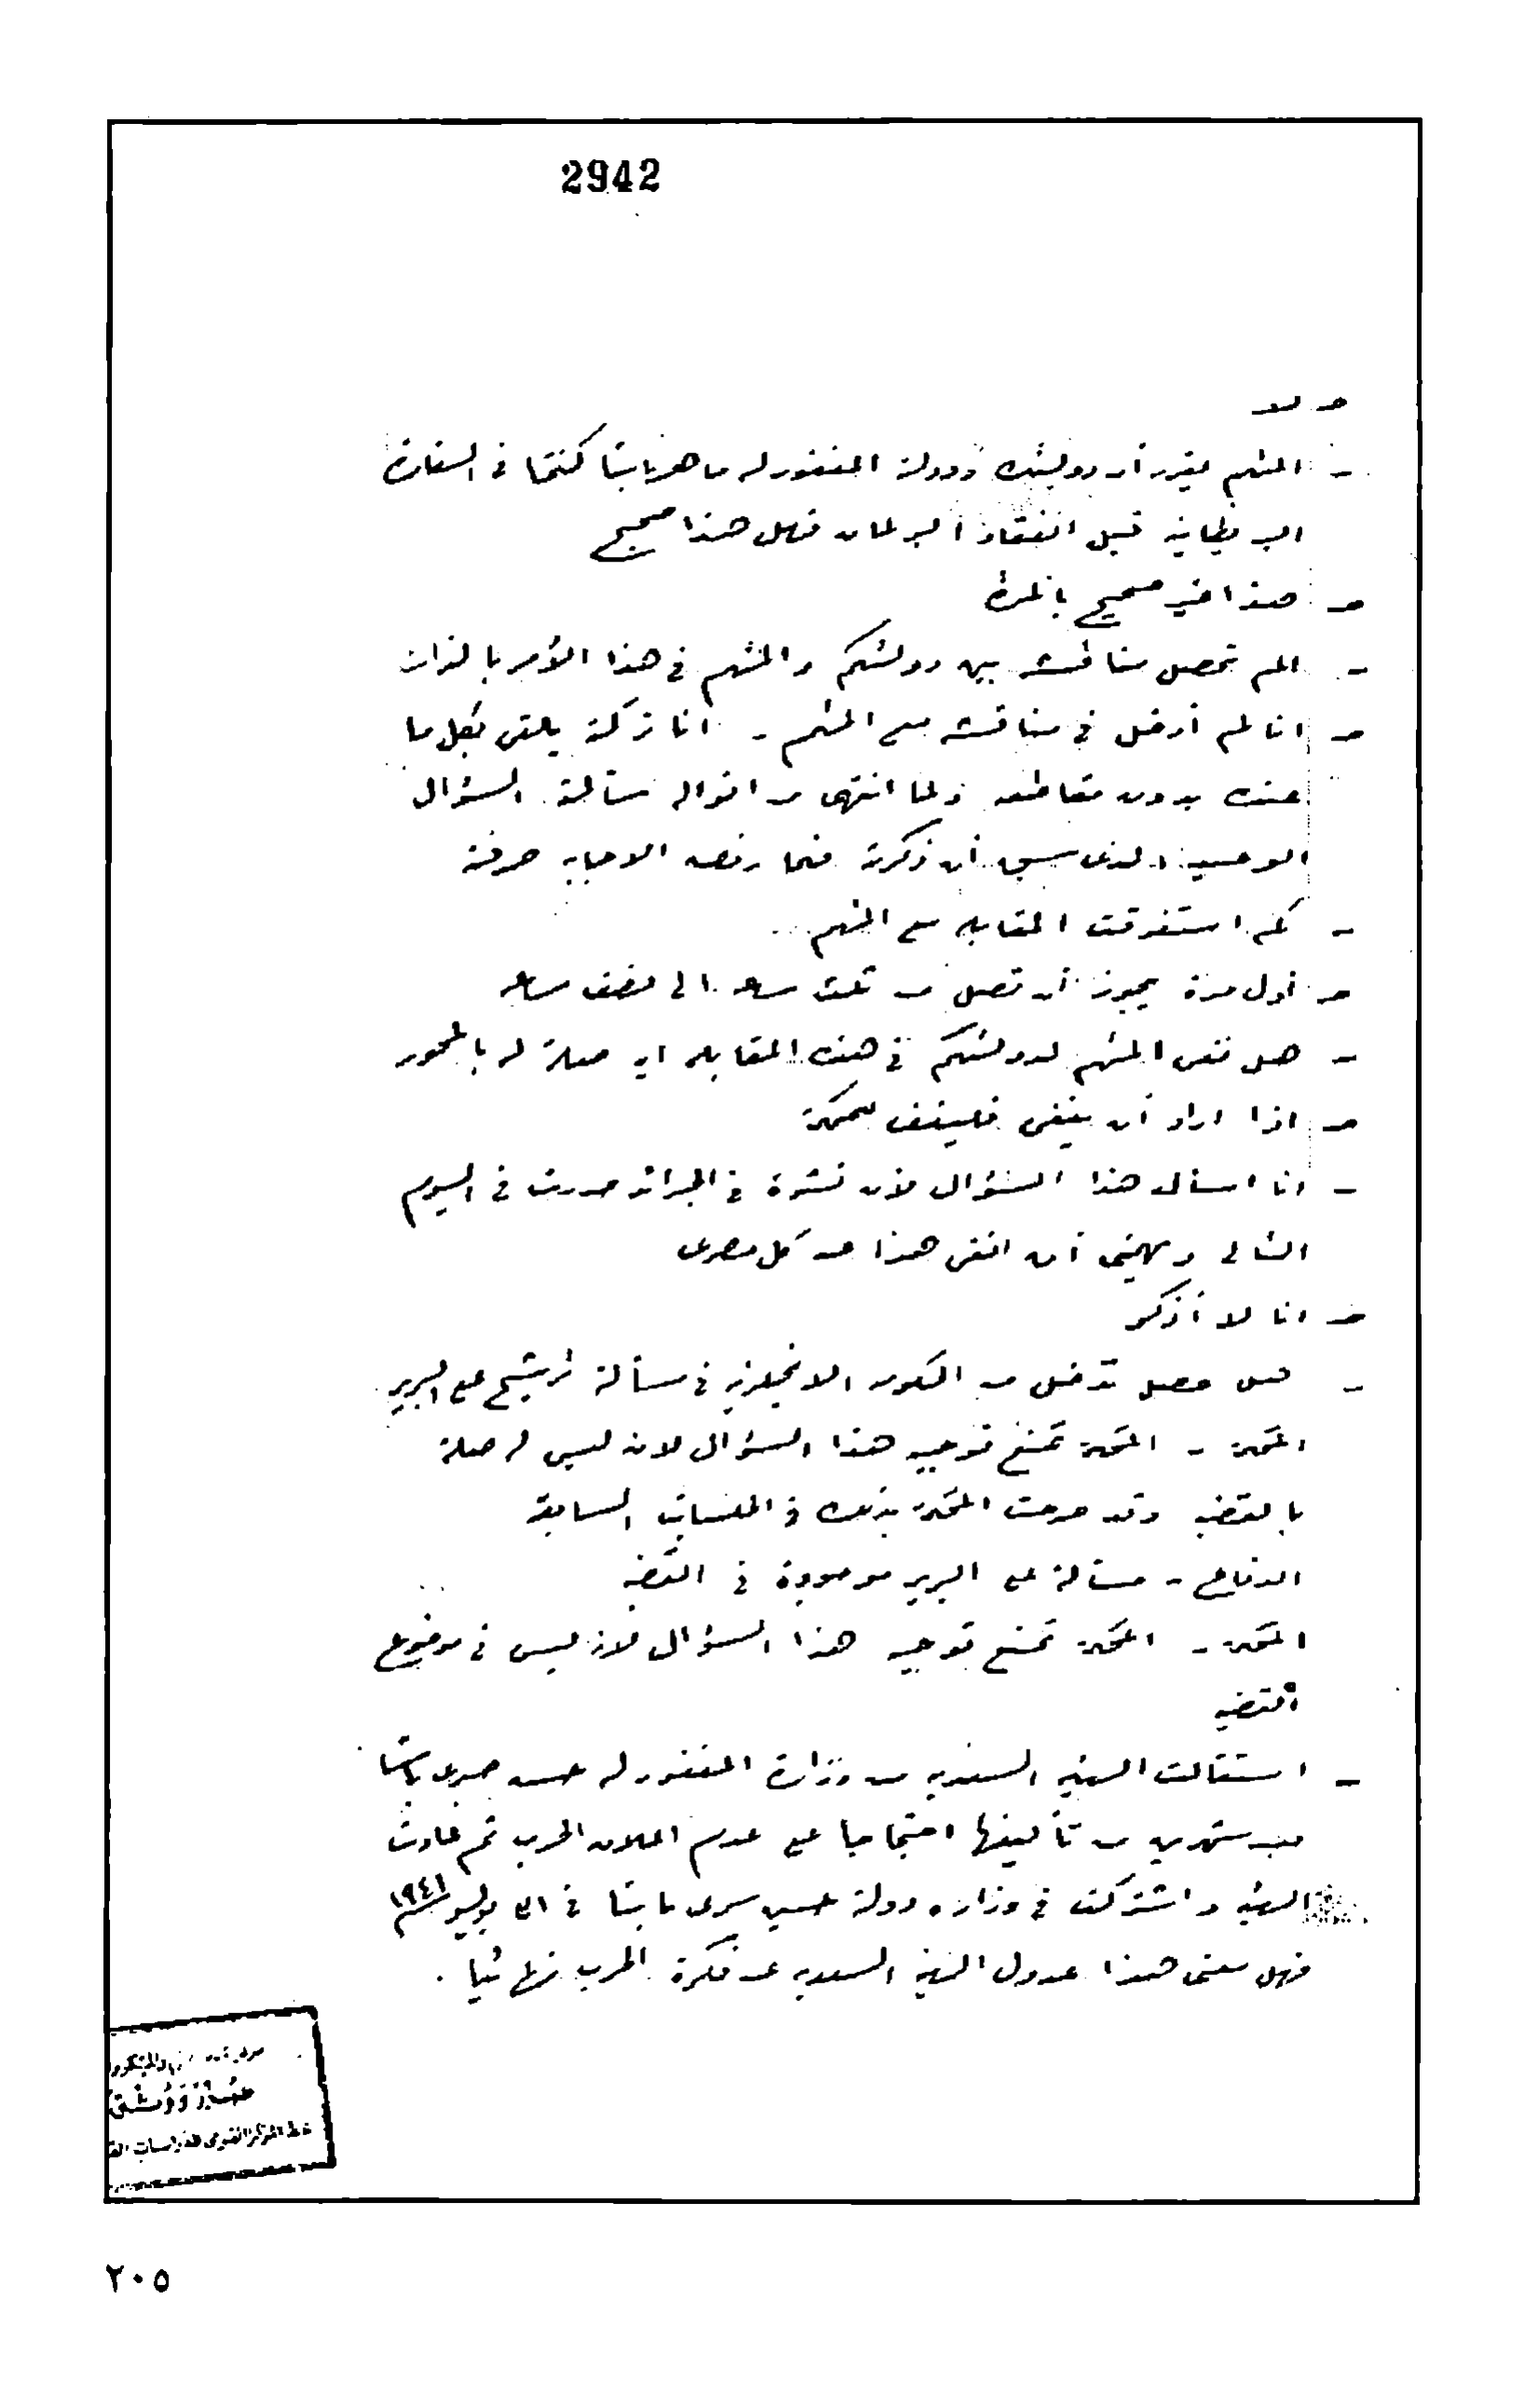 2942
ج لا
- المتهم يقرر أن دولتك ودولة المغفور له ماهر باشا كنتما في السفارة
البريطانية قبل انعقاد البرلمان فهل هذا صحيح
ج هذا غير صحيح بالمرة
- ألم تحصل مناقشة بين دولتكم والمتهم في هذا الأمر بالذات
ج أنا لم أدخل في مناقشة مع المتهم - أنا تركته يلقى بكل ما
عنده بدون مقاطعة ولما انتهى من أقواله سألته السؤال
الوحيد الذى سبق أن ذكرته فلما رفض الاجابه صرفته
- كم استغرقت المقابله مع المتهم
ج أول مرة يجوز أن تصل من ثلث ساعه الى نصف ساعه
- هل نفى المتهم لدولتكم في هذه المقابله أيه صلة له بالمحور
ج اذا اراد أن ينفى فلينف للمحكمة
- أنا اسأل هذا السؤال لأن نشرة في الجرائد صدرت في اليوم
التالى ويهمنى أن انفى هذا عن كل مصرى
ج انا لا أذكر
- هل حصل تدخل من الحكومه الانجليزيه في مسألة ترشيح على البرير
المحكمة - المحكمة تمنع توجيه هذا السؤال لانه ليس له صلة
بالقضيه وقد صرحت المحكمة بذلك في الجلسات السابقة
الدفاع - مسألة على البرير موجودة في القضيه
المحكمة - المحكمة تمنع توجيه هذا السؤال لأنه ليس في موضوع
القضيه
- استقالت الهيئه السعديه من وزارة المغفور له حسن صبرى باشا
بعد شهرين من تأليفها احتجاجا على عدم اعلان الحرب ثم عادت
الهيئه واشتركت في وزاره دولة حسين سرى باشا في ٣١ يوليو سنة ١٩٤١
فهل معنى هذا عدول الهيئه السعديه عن فكرة الحرب نهائيا .
٢٠٥